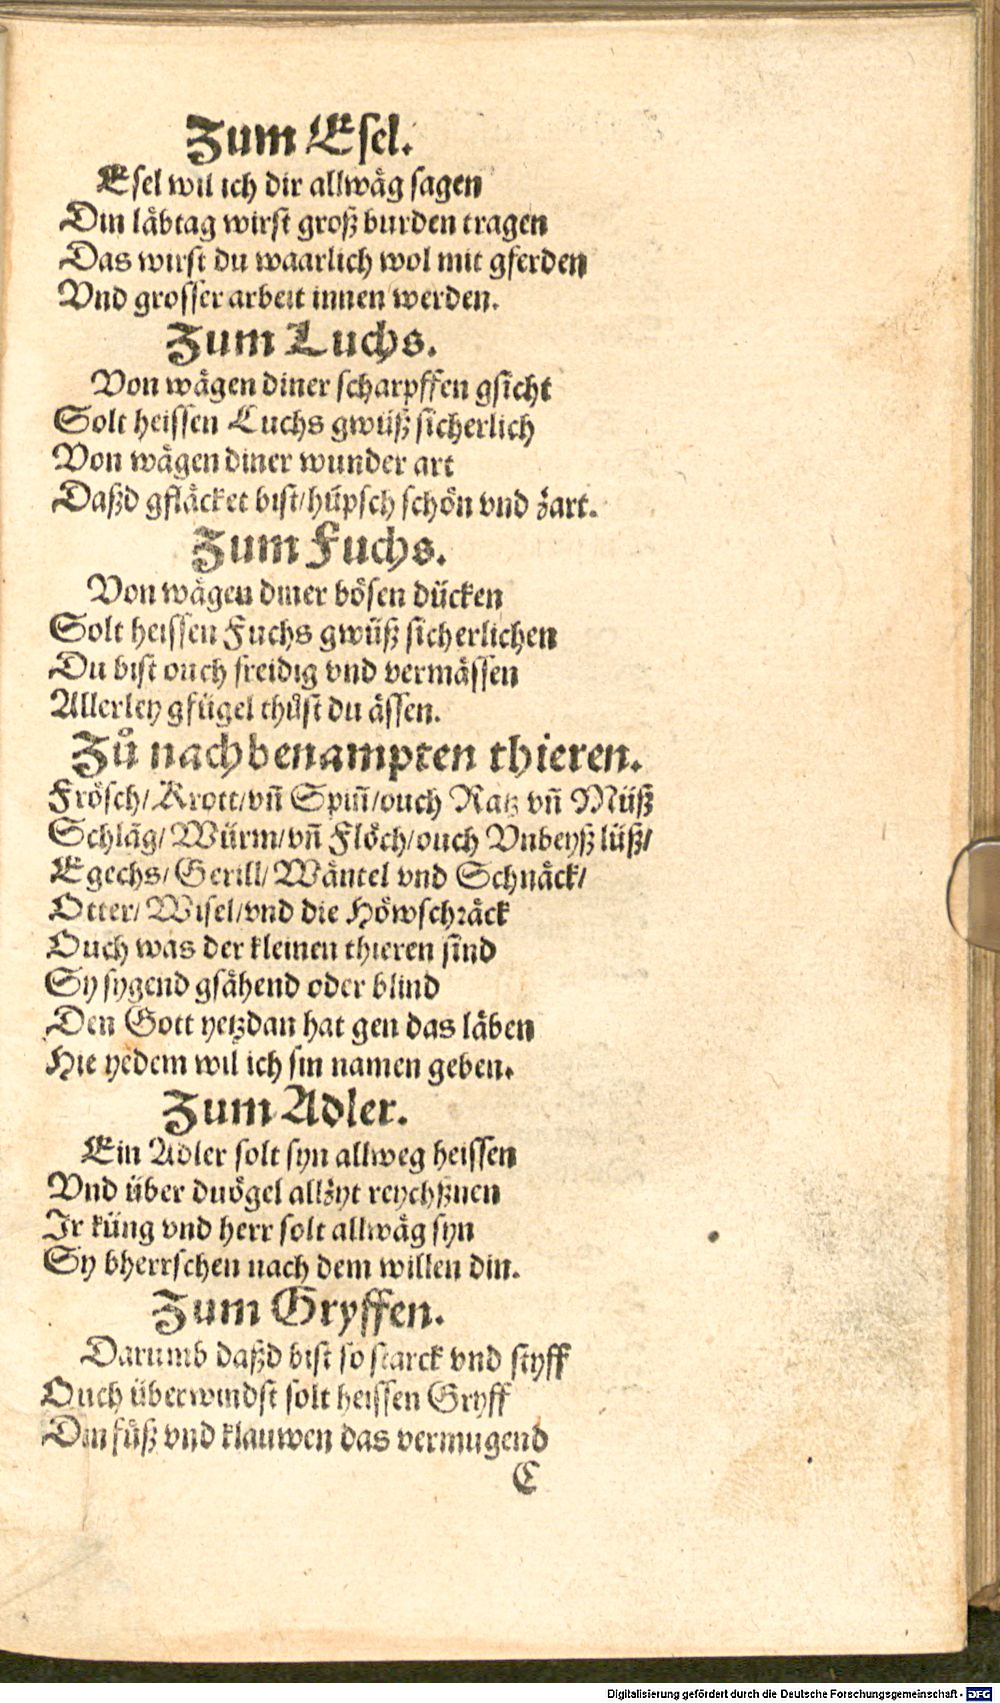 Zum Esel.
Esel wil ich dir allwäg sagen
Din läbtag wirst groß burden tragen
Das wirst du waarlich wol mit gferden
Vnd grosser arbeit innen werden.
Zum Luchs.
Von wägen diner scharpffen gsicht
Solt heissen Luchs gwüß sicherlich
Von wägen diner wunder art
Daßd gfläcket bist/hüpsch schön vnd zart.
Zum Fuchs.
Von wägen diner bösen dücken
Solt heissen Fuchs gwüß sicherlichen
Du bist ouch freidig vnd vermässen
Allerley gfügel thůst du ässen.
Zů nachbenampten thieren.
Frösch/Krott/vñ Spiñ/ouch Ratz vñ Müß
Schläg/Würm/vñ Flöch/ouch Vnbeyß lüß/
Egechs/Gerill/Wäntel vnd Schnäck/
Otter/Wisel/vnd die Höwschräck
Ouch was der kleinen thieren sind
Sy sygend gsähend oder blind
Den Gott yetzdan hat gen das läben
Hie yedem wil ich sin namen geben.
Zum Adler.
Ein Adler solt syn allweg heissen
Vnd über dvögel allzyt reychßnen
Ir küng vnd herr solt allwäg syn
Sy bherrschen nach dem willen din.
Zum Gryffen.
Darumb daßd bist so starck vnd styff
Ouch überwindst solt heissen Gryff
Din füß vnd klauwen das vermugend
C
Digitalisierung gefördert durch die Deutsche Forschungsgemeinschaft - DFG